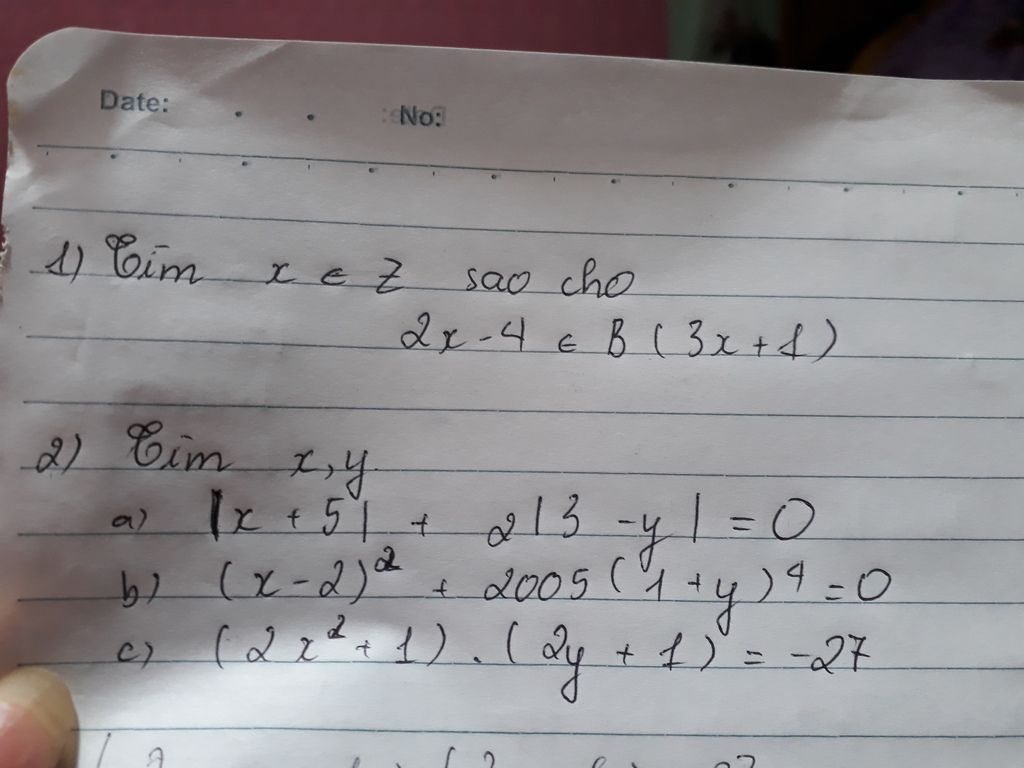 Date: . . No:
1) Tìm x ∈ Z sao cho
2x - 4 ∈ B (3x + 1)
2) Tìm x, y
a) |x + 5| + 2|3 - y| = 0
b) (x - 2)² + 2005(1 + y)⁴ = 0
c) (2x² + 1) . (2y + 1) = -27